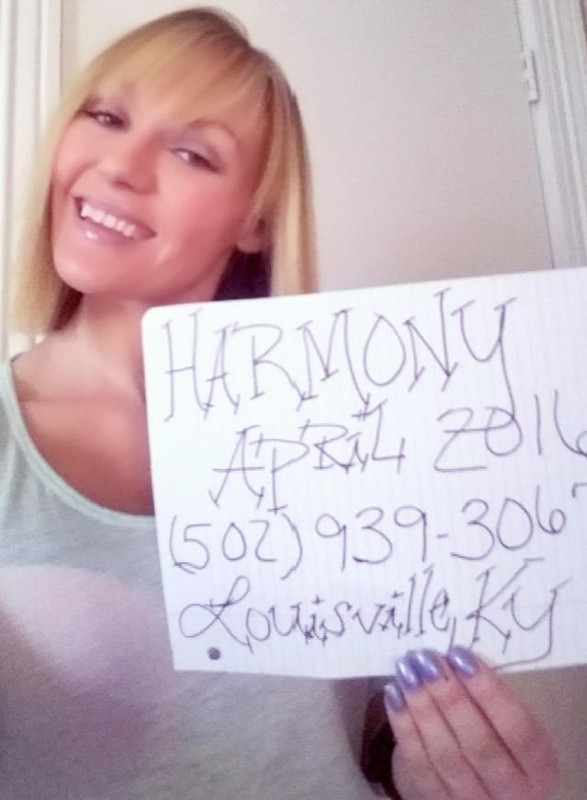 HARMONY
APRiL 2016
(502) 939-3067
Louisville, Ky